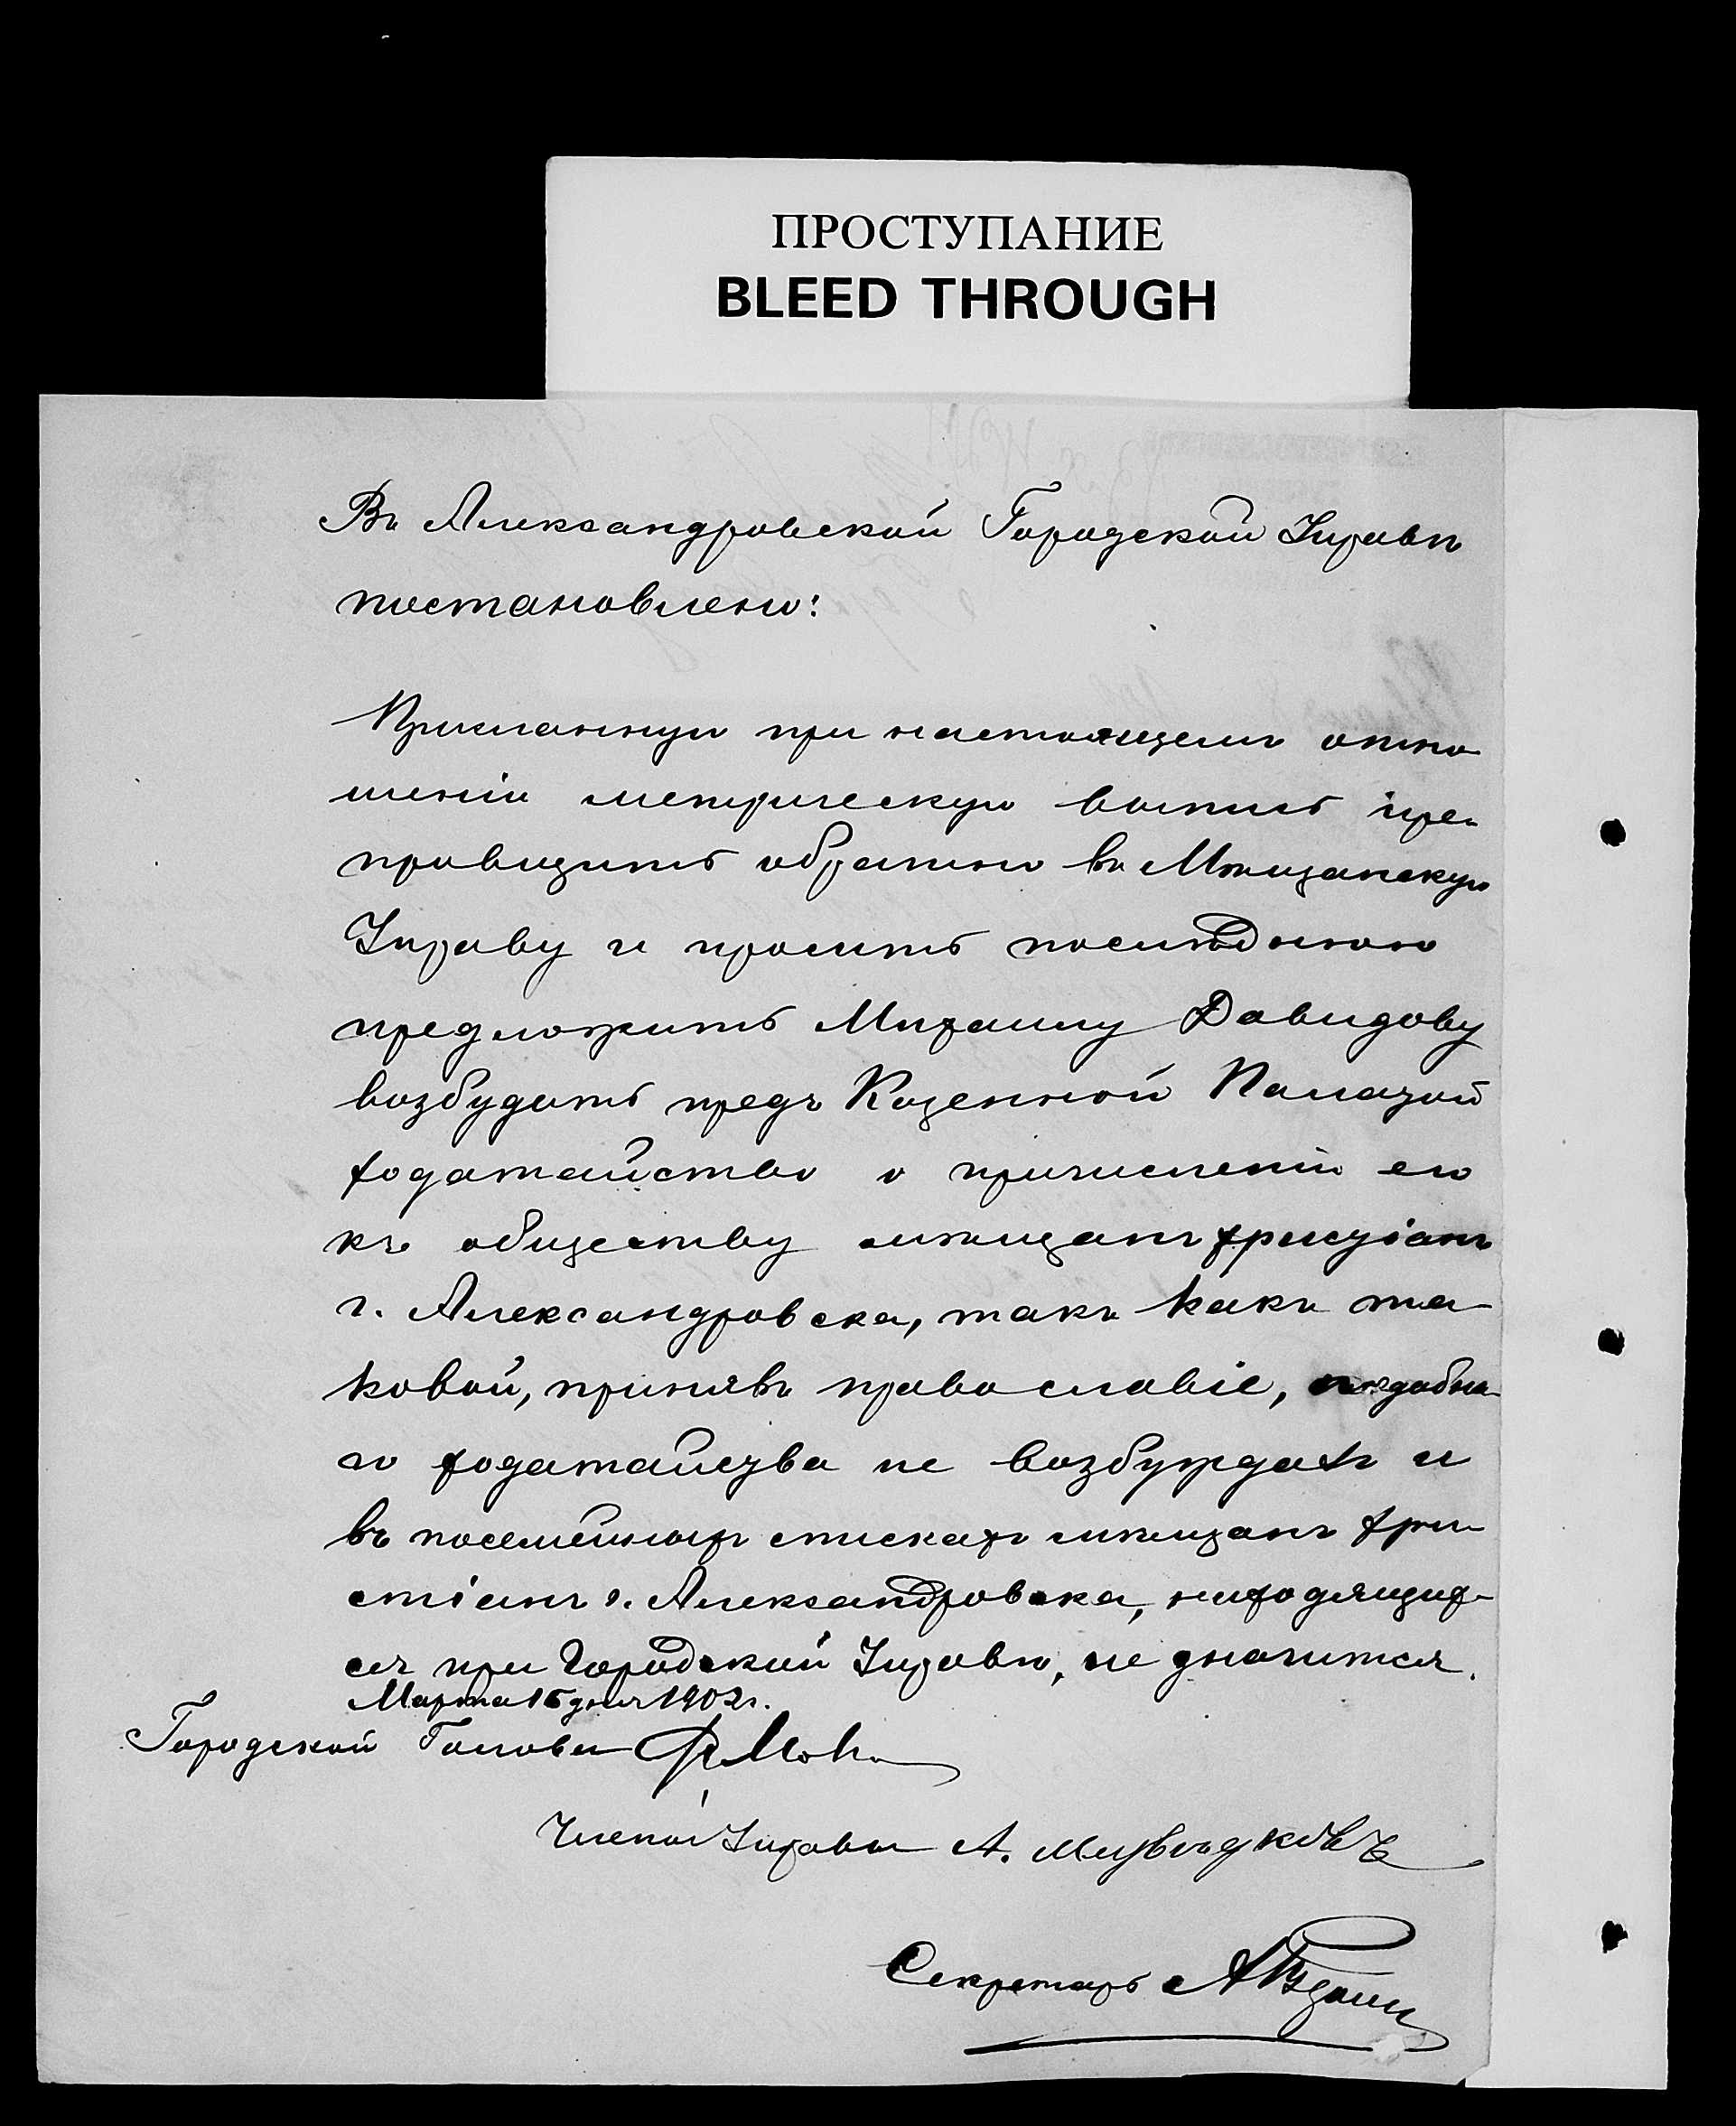 ПРОСТУПАНИЕ
BLEED THROUGH
Въ Александровской Городской Управѣ
постановлено:
Присланную при настоящемъ отно
шеніи метрическую выпись пре-
проводить обратно въ Мѣщанскую
Управу и просить послѣднюю
предложить Михаилу Давидову
возбудить предъ Казенной Палатой
ходатайство о причисленіи его
къ обществу мѣщанъ христіанъ
г. Александровска, такъ какъ та-
ковой, принявъ православіе, подобна-
го ходатайства не возбуждалъ и
въ посемейныхъ спискахъ мѣщанъ хри-
стіанъ г. Александровска, находящих-
ся при Городской Управѣ, не значится.
Марта 15 дня 1902 г.
Городской Голова
Членъ Управы А.
Секретарь